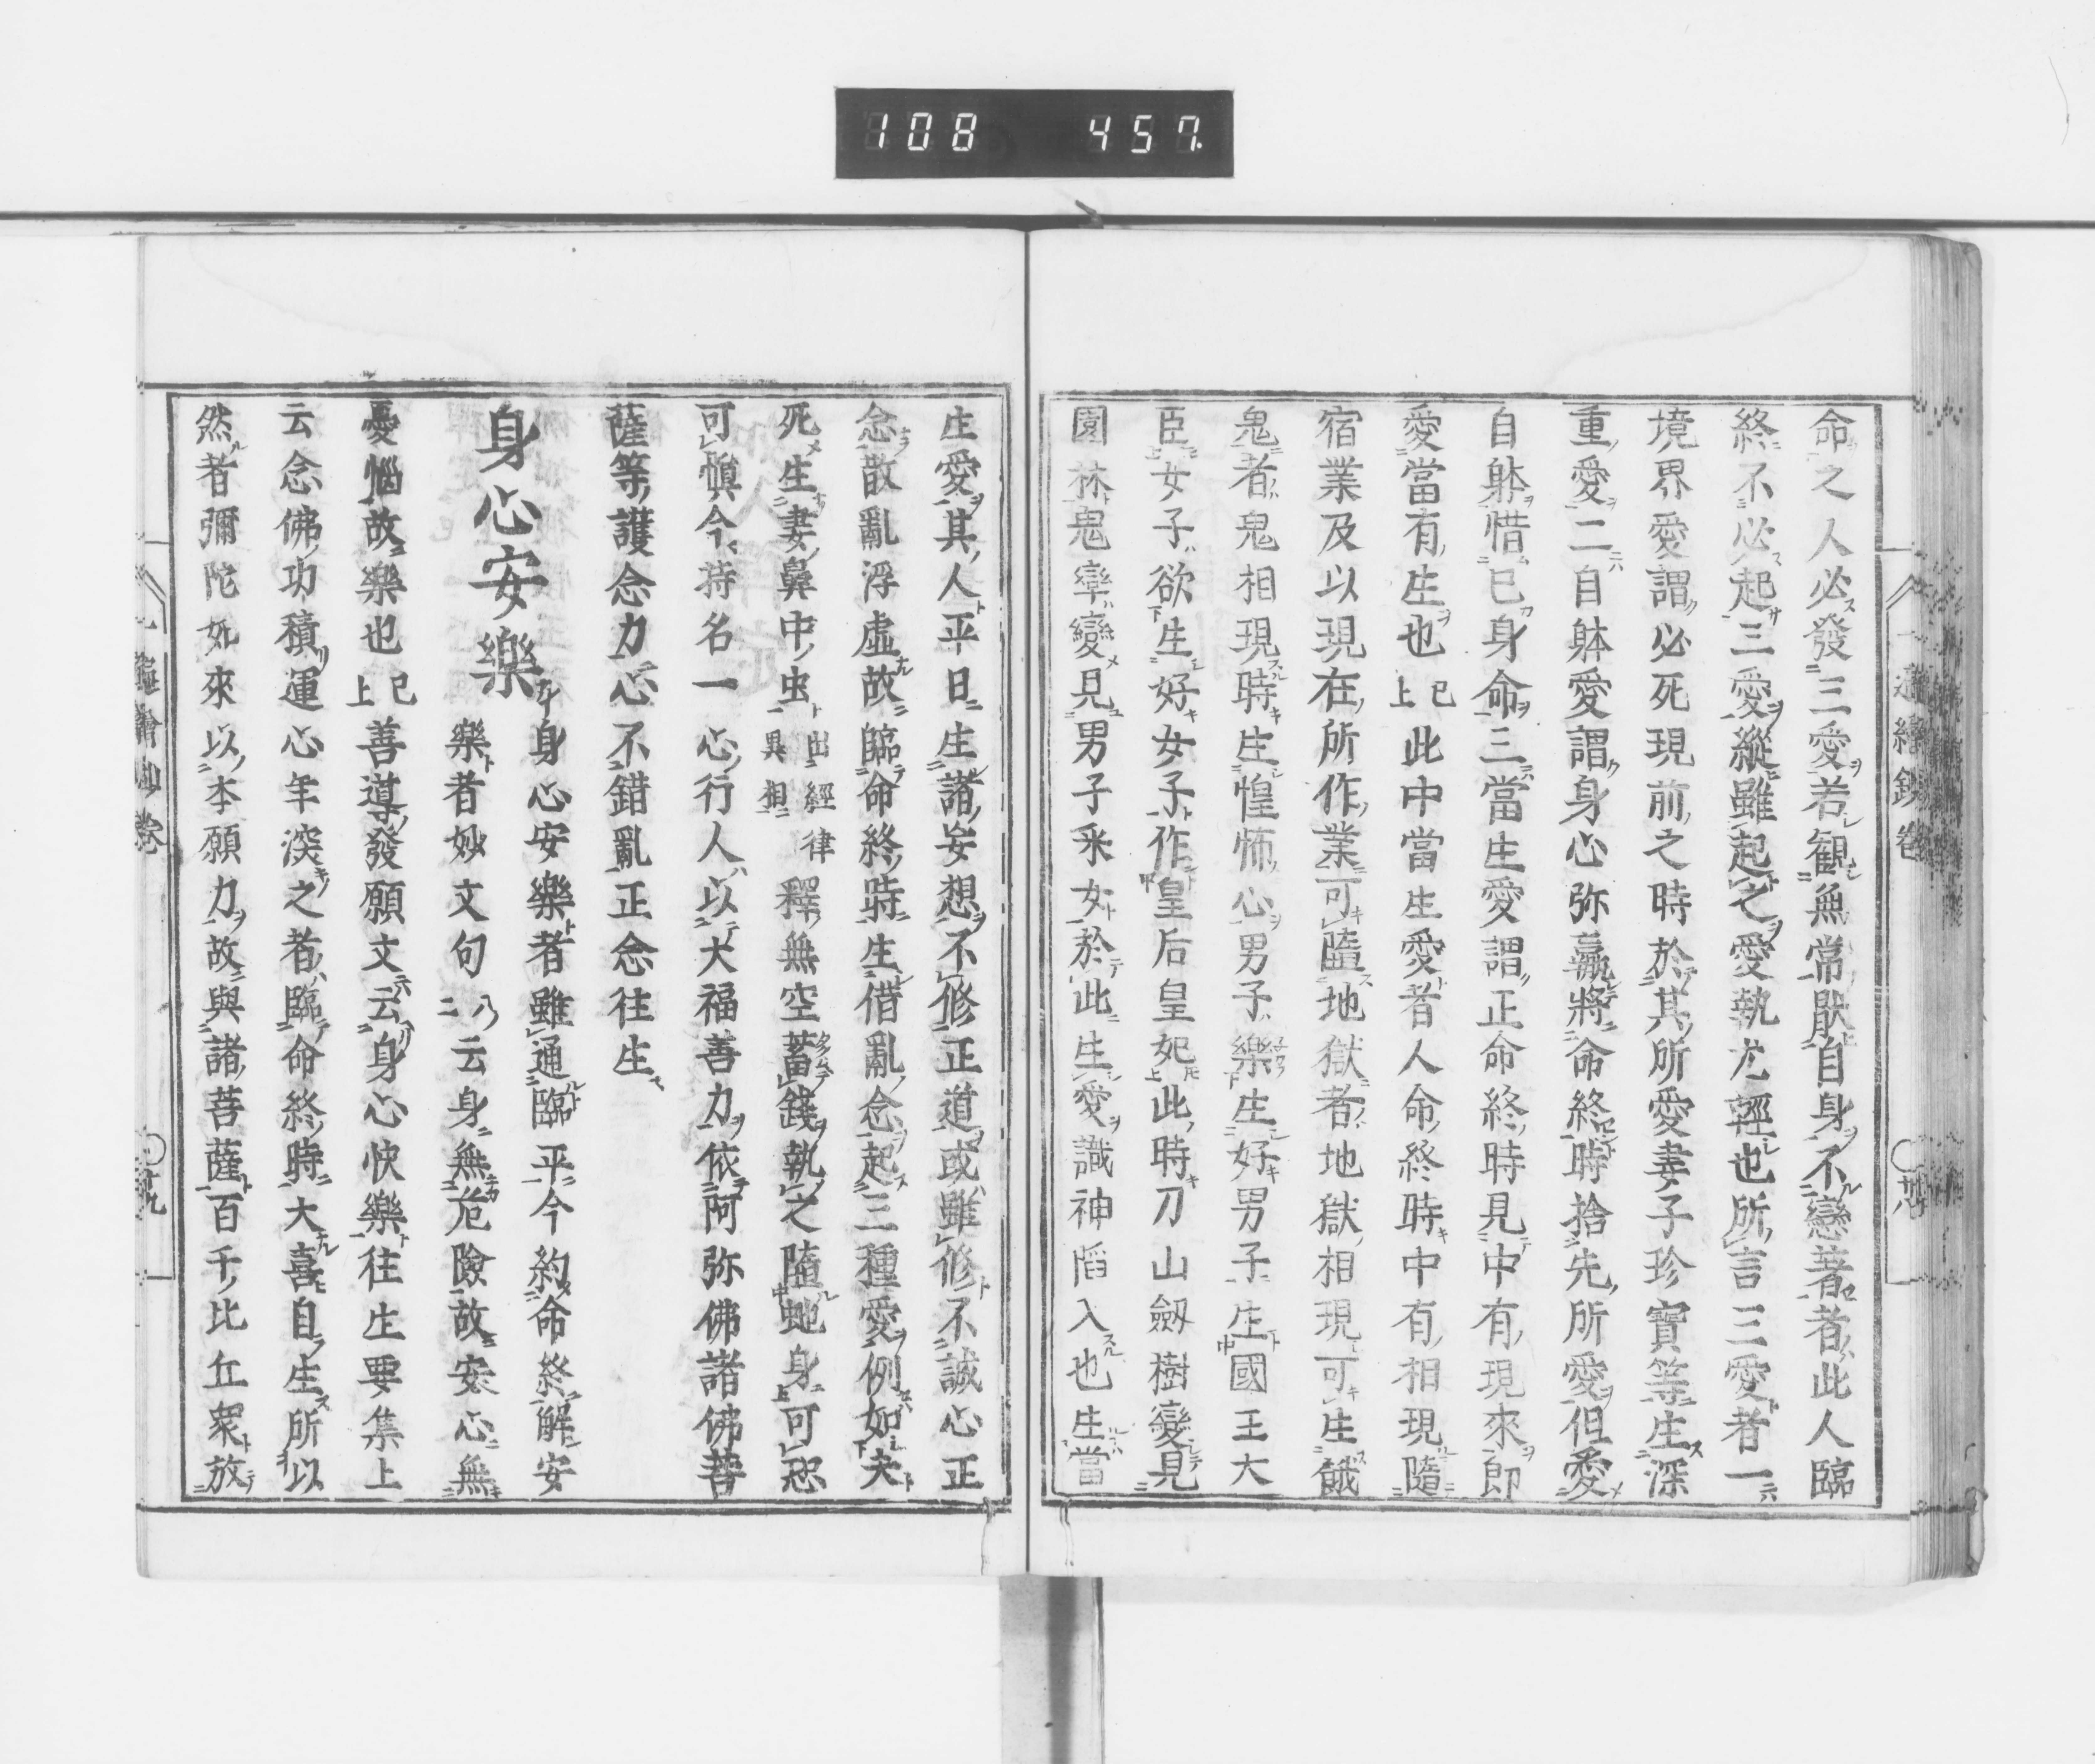 108 457
命之人必發三愛若観無常厭自身不戀著者此人臨
終不必起三愛縱雖起之愛執尤輕也所言三愛者一
境界愛謂必死現前之時於其所愛妻子珍寶等生深
重愛二自躰愛謂身心弥羸將命終時捨先所愛但愛
自躰惜已身命三當生愛謂正命終時見中有現來即
愛當有生也已上此中當生愛者人命終時中有相現隨
宿業及以現在所作業可隨地獄者地獄相現可生餓
鬼者鬼相現時生惶怖心男子樂生好男子生國王大
臣女子欲生好女子作皇后皇妃此時刀山劔樹變見
園林鬼率變見男子釆女於此生愛識神陷入也生當
生愛其人平日生諸妄想不修正道或雖修不誠心正
念散亂浮虛故臨命終時生借亂念起三種愛例如夫
死生妻鼻中虫出經律異相釋無空蓄錢執之隨虵身可恐
可愼今持名一心行人以大福善力依阿弥佛諸佛菩
薩等護念力心不錯亂正念往生
身心安樂身心安樂者雖通臨平今約命終解安
樂者妙文句八二云身無危險故安心無
憂惱故樂也已上善導發願文云身心快樂往生要集上
云念佛功積運心年深之者臨命終時大喜自生所以
然者彌陀如來以本願力故與諸菩薩百千比丘衆放